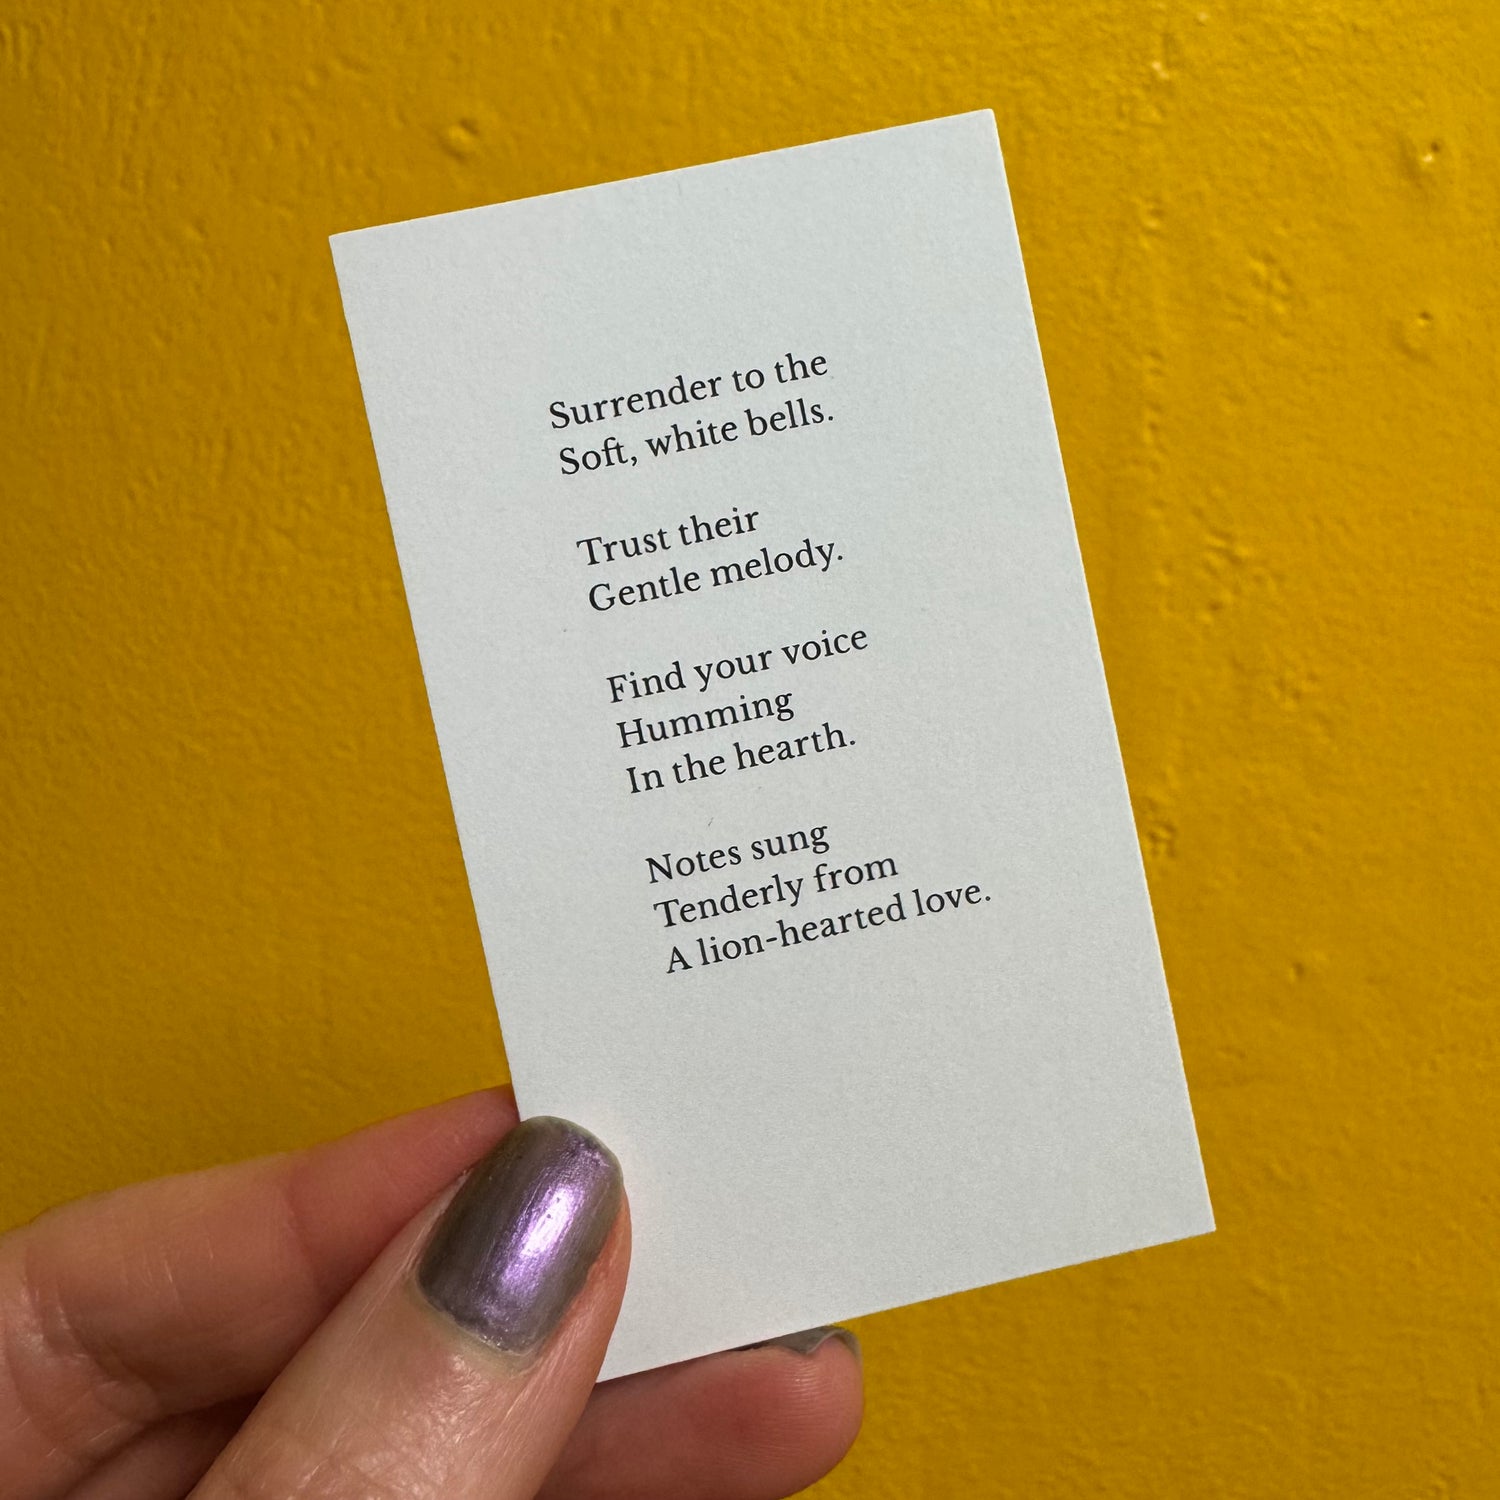 Surrender to the
Soft, white bells.
Trust their
Gentle melody.
Find your voice
Humming
In the hearth.
Notes sung
Tenderly from
A lion-hearted love.